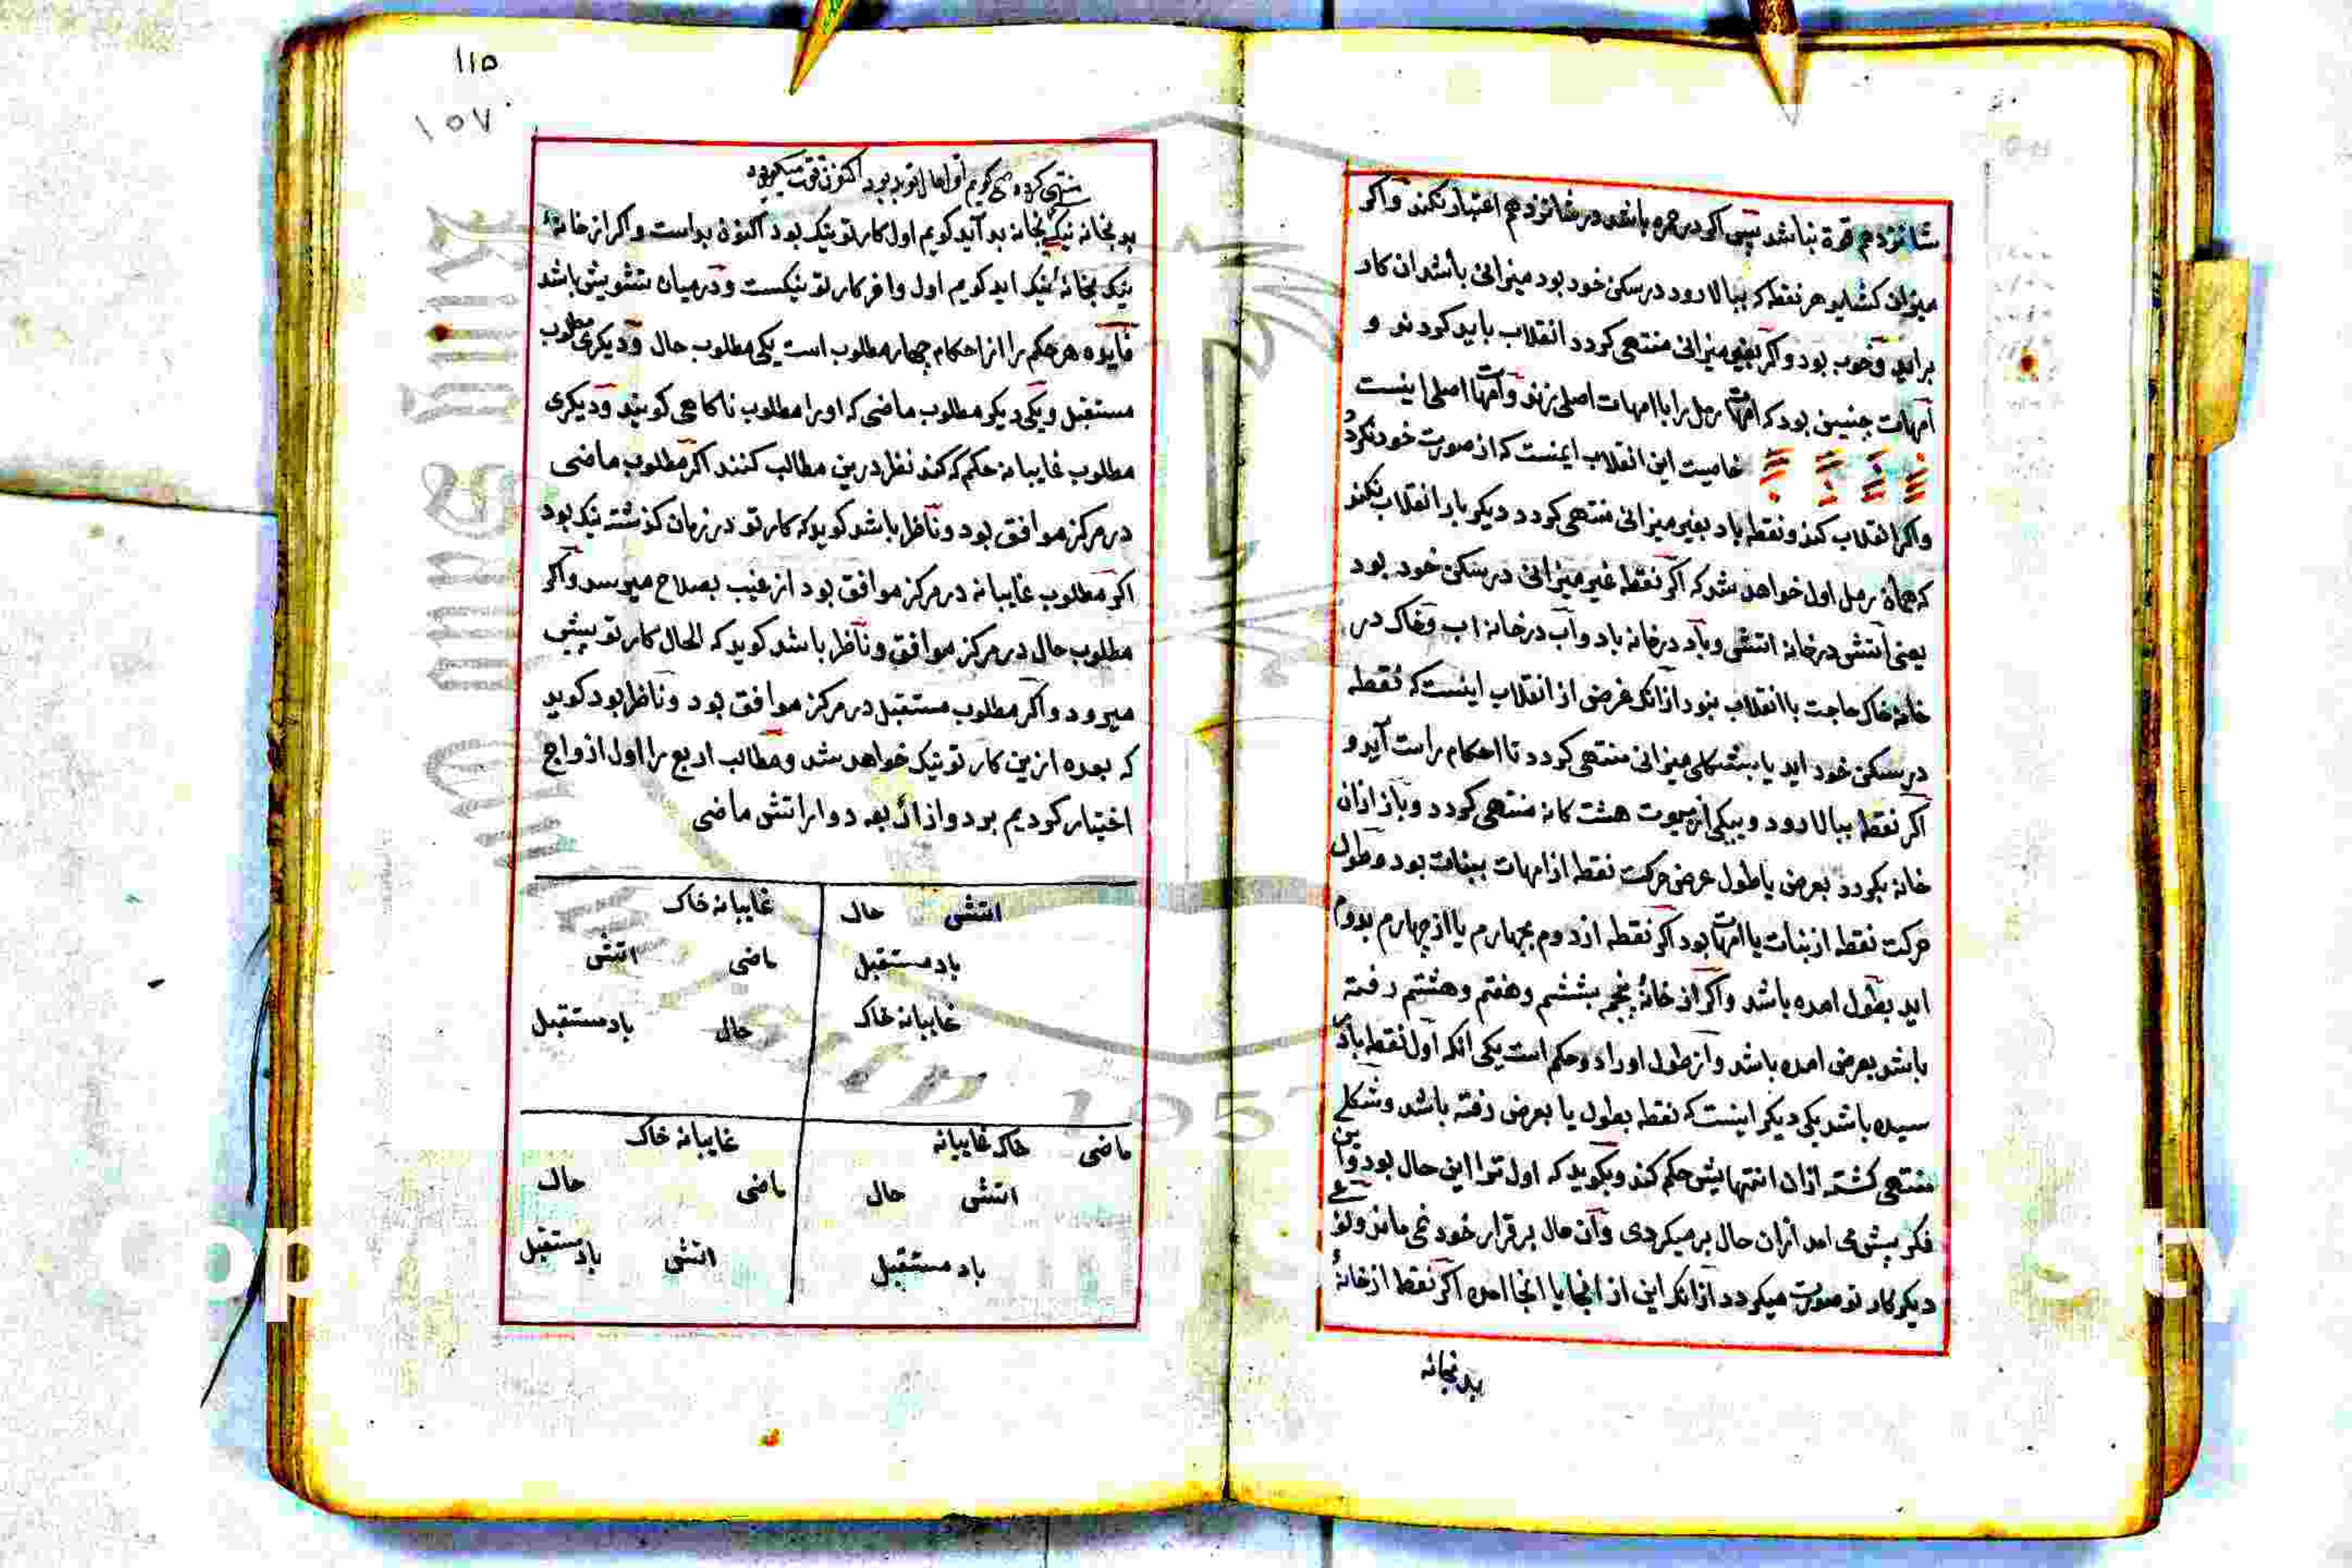 شانزدهم قوة نباشد پس اکر در جره باشد در شانزدهم اعتبار نکند و اکر
میزان کشاید هر نقطه که ببالا رود در سکن خود بود میزانی باشد ان کار
براید و خوب بود و اکر بغیر میزانی منتهی کردد انقلاب باید کردند و
امهات چنین بود که امهات رمل را با امهات اصلی زند و امهات اصلی اینست
خاصیت این انقلاب اینست که از صورت خود نکردد
و اکر انقلاب کند و نقطه باد بغیر میزانی منتهی کردد دیکر بار انقلاب نکند
که همان رمل اول خواهد شد که اکر نقطه غیر میزانی در سکن خود بود
یعنی اتشی در خانه اتشی و باد در خانه باد و آب در خانه اب و خاک در
خانه خاک حاجت با انقلاب نبود از انکه غرض از انقلاب اینست که نقطه
در سکن خود اید یا بشکلی میزانی منتهی کردد تا احکام راست آید و
اکر نقطه ببالا رود و بیکی از بیوت هشت کانه منتهی کردد و باز ازان
خانه بکردد بعرض یا طول عرض حرکت نقطه از امهات ببنات بود و طول
حرکت نقطه از بنات یا امهات بود اکر نقطه از دوم بچهارم یا از چهارم بدوم
اید بطول امده باشد و اکر از خانهٔ پنجم بششم و هفتم و هشتم رفته
باشد بعرض امده باشد و از طول اورا دو حکم است یکی انکه اول نقطه باد
سیده باشد یکی دیکر اینست که نقطه بطول یا بعرض رفته باشد و شکلی
منتهی کشته ازان انتهایش حکم کند و بکوید که اول ترا این حال بود و این
فکر پیش می امد ازان حال بر میکردی و آن حال بر قرار خود نمی ماند و
دیکر کار تو صورت میکردد از انکه این از انجا یا انجا امده اکر نقطه از خانهٔ
بد بخانه
۱۱۵
۱۵۷
منتهی کردد کویم اول حال تو بد بود اکنون قوت میکیرد
بد بخانه نیک بخانه بد آید کویم اول کار تو نیک بود اکنون بد است و اکر از خانهٔ
نیک بخانهٔ نیک اید کویم اول و اخر کار تو نیکست و در میان تشویش باشد
فایده هر حکم را از احکام چهار مطلوب است یکی مطلوب حال و دیکری مطلوب
مستقبل و یکی دیکر مطلوب ماضی که او را مطلوب ناکاهی کویند و دیکری
مطلوب غایبانه حکم که کند نظر درین مطالب کنند اکر مطلوب ماضی
در مرکز موافق بود و ناظر باشد کوید که کار تو در زمان کذشته نیک بود
اکر مطلوب غایبانه در مرکز موافق بود از غیب بصلاح میرسد و اکر
مطلوب حال در مرکز موافق و ناظر باشد کوید که الحال کار تو پیش
میرود و اکر مطلوب مستقبل در مرکز موافق بود و ناظر بود کوید
که بعده ازین کار تو نیک خواهد شد و مطالب اربع را اول ازواج
اختیار کردیم بر دو از اربعه دوار اتشی ماضی
اتشی حال
باد مستقبل
غایبانه خاک
غایبانه خاک
ماضی اتشی
حال باد مستقبل
ماضی خاک غایبانه
اتشی حال
باد مستقبل
غایبانه خاک
ماضی حال
اتشی باد مستقبل